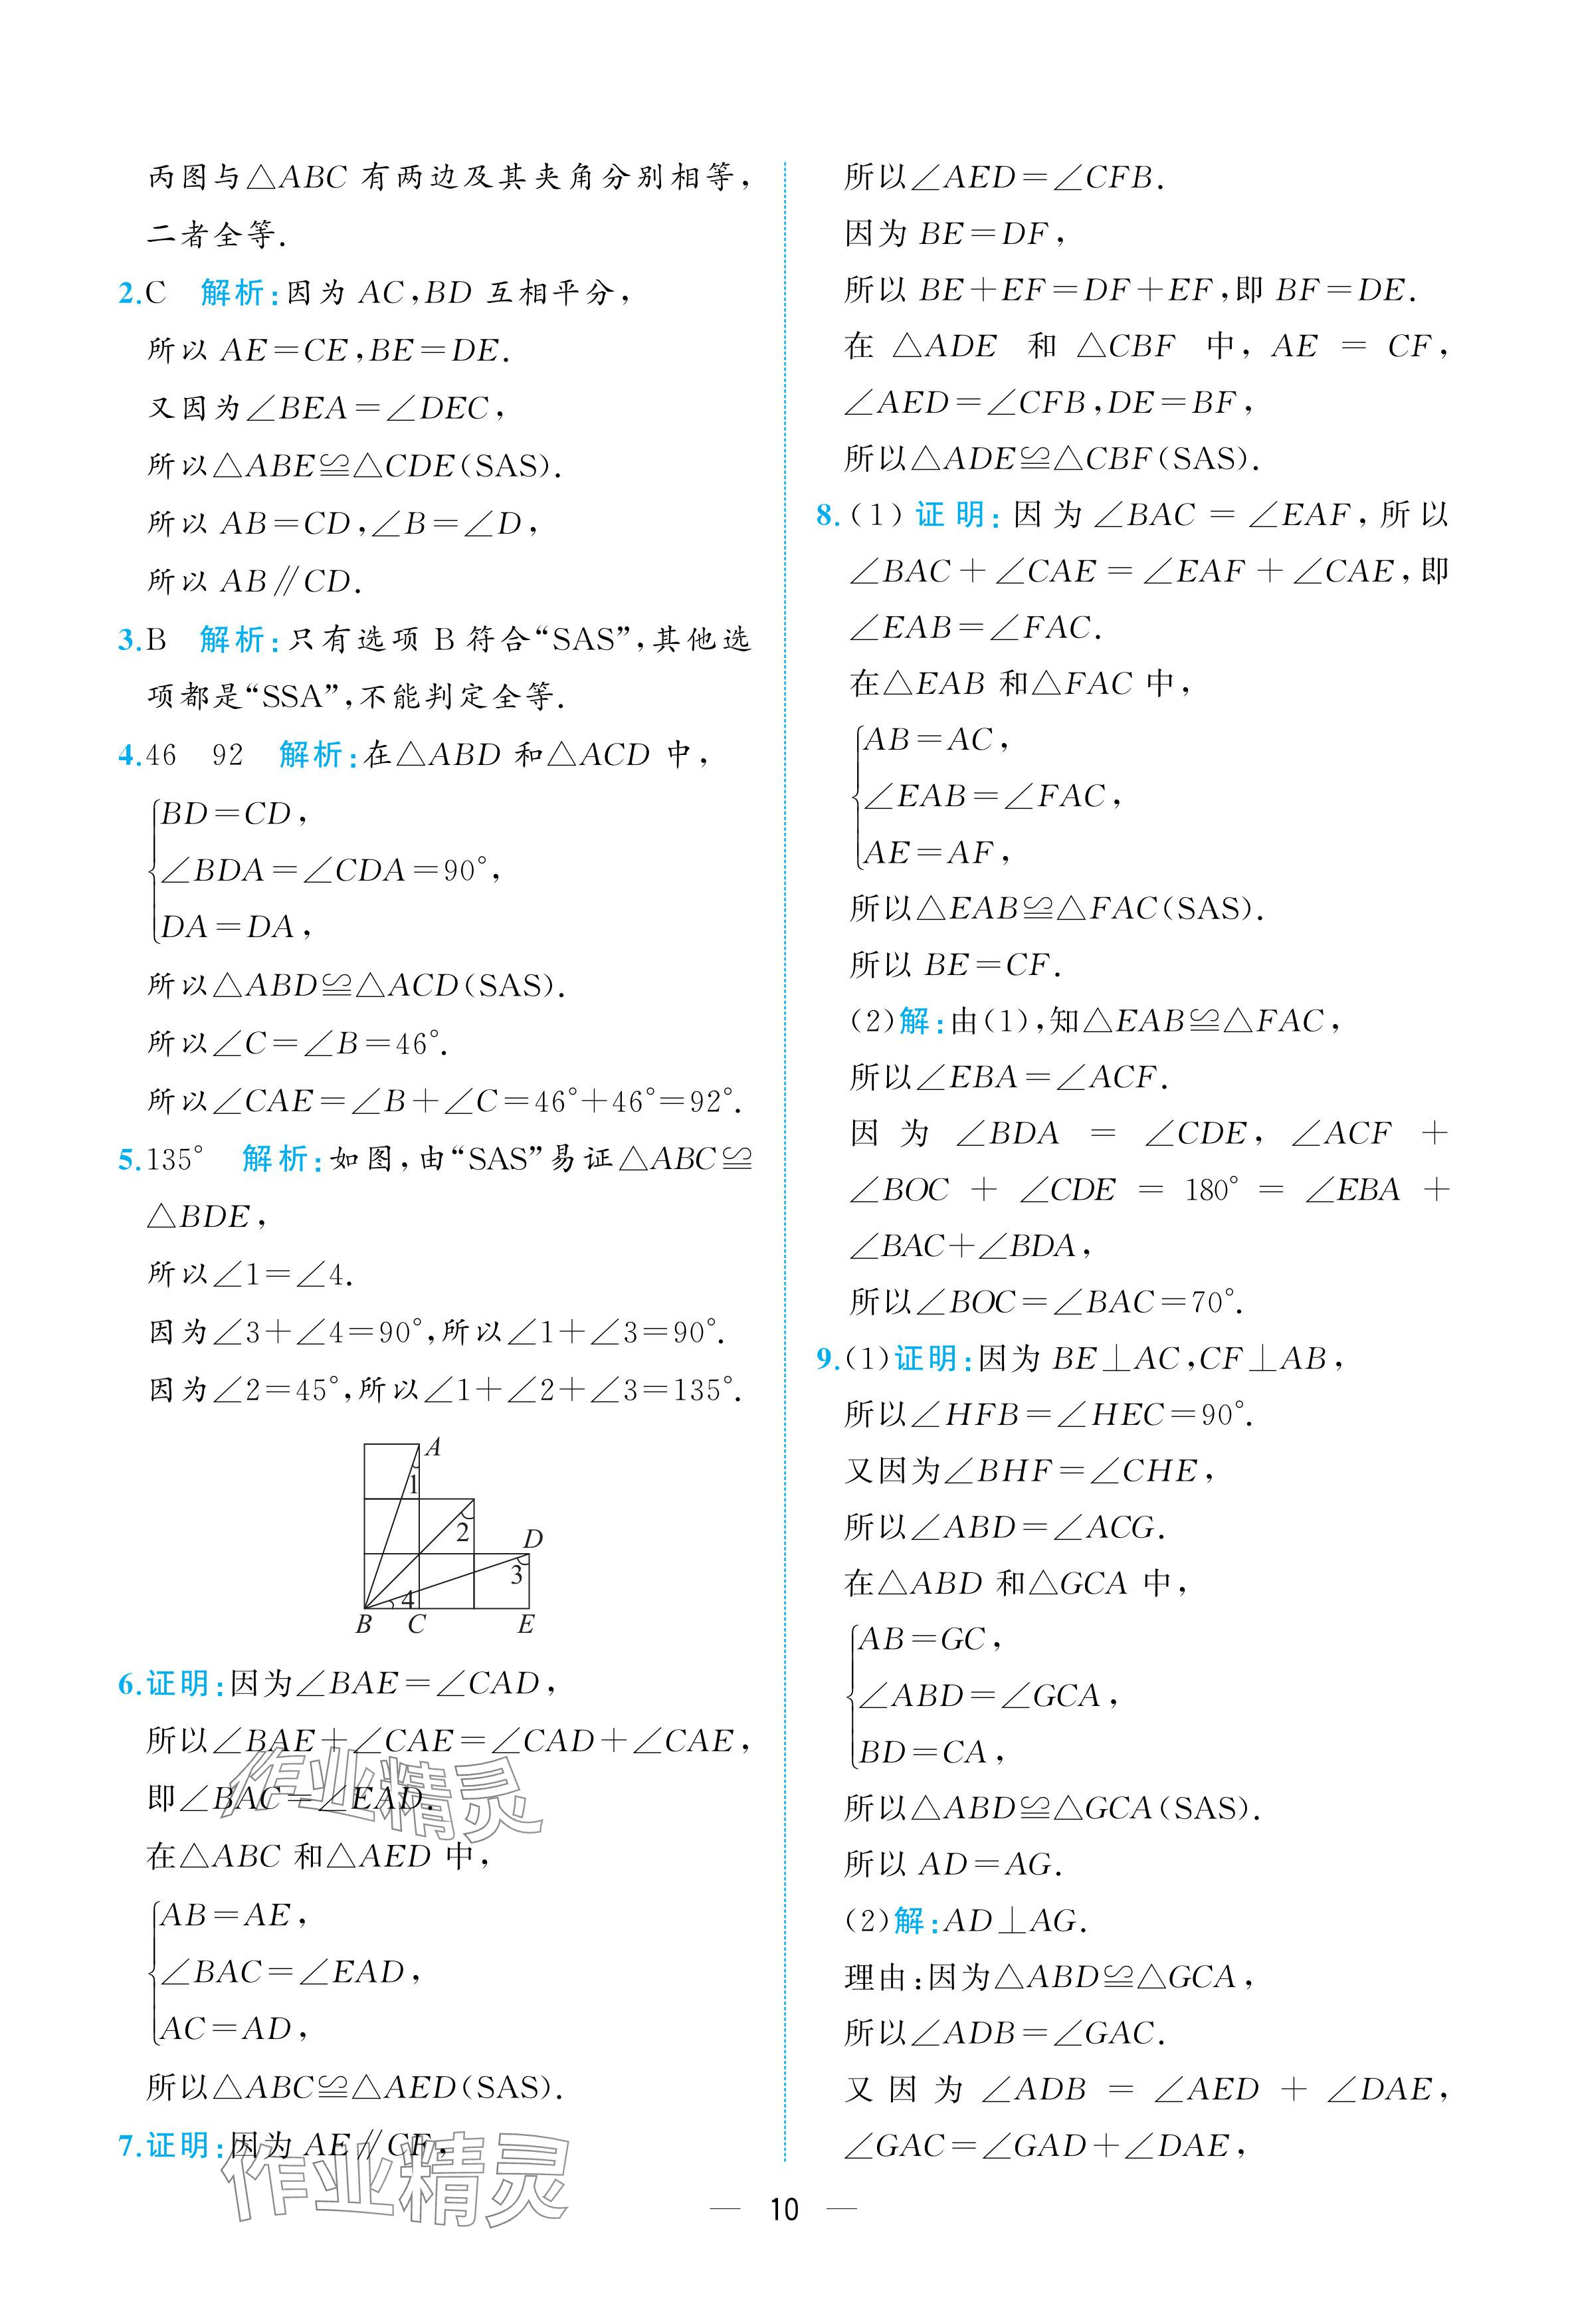 丙图与△ABC 有两边及其夹角分别相等，
二者全等.
2.C 解析：因为 AC，BD 互相平分，
所以 AE＝CE，BE＝DE.
又因为∠BEA＝∠DEC，
所以△ABE≌△CDE(SAS).
所以 AB＝CD，∠B＝∠D，
所以 AB∥CD.
3.B 解析：只有选项 B 符合“SAS”，其他选
项都是“SSA”，不能判定全等.
4.46 92 解析：在△ABD 和△ACD 中，
BD＝CD，
∠BDA＝∠CDA＝90°，
DA＝DA，
所以△ABD≌△ACD(SAS).
所以∠C＝∠B＝46°.
所以∠CAE＝∠B＋∠C＝46°＋46°＝92°.
5.135° 解析：如图，由“SAS”易证△ABC≌
△BDE，
所以∠1＝∠4.
因为∠3＋∠4＝90°，所以∠1＋∠3＝90°.
因为∠2＝45°，所以∠1＋∠2＋∠3＝135°.
A
1
2
D
3
4
B C E
6.证明：因为∠BAE＝∠CAD，
所以∠BAE＋∠CAE＝∠CAD＋∠CAE，
即∠BAC＝∠EAD.
作业精灵
在△ABC 和△AED 中，
AB＝AE，
∠BAC＝∠EAD，
AC＝AD，
所以△ABC≌△AED(SAS).
7.证明：因为 AE∥CF，
作业精灵
所以∠AED＝∠CFB.
因为 BE＝DF，
所以 BE＋EF＝DF＋EF，即 BF＝DE.
在 △ADE 和 △CBF 中，AE ＝ CF，
∠AED＝∠CFB，DE＝BF，
所以△ADE≌△CBF(SAS).
8.(1)证明：因为∠BAC＝∠EAF，所以
∠BAC＋∠CAE＝∠EAF＋∠CAE，即
∠EAB＝∠FAC.
在△EAB 和△FAC 中，
AB＝AC，
∠EAB＝∠FAC，
AE＝AF，
所以△EAB≌△FAC(SAS).
所以 BE＝CF.
(2)解：由(1)，知△EAB≌△FAC，
所以∠EBA＝∠ACF.
因为 ∠BDA ＝ ∠CDE，∠ACF ＋
∠BOC ＋ ∠CDE ＝ 180° ＝ ∠EBA ＋
∠BAC＋∠BDA，
所以∠BOC＝∠BAC＝70°.
9.(1)证明：因为 BE⊥AC，CF⊥AB，
所以∠HFB＝∠HEC＝90°.
又因为∠BHF＝∠CHE，
所以∠ABD＝∠ACG.
在△ABD 和△GCA 中，
AB＝GC，
∠ABD＝∠GCA，
BD＝CA，
所以△ABD≌△GCA(SAS).
所以 AD＝AG.
(2)解：AD⊥AG.
理由：因为△ABD≌△GCA，
所以∠ADB＝∠GAC.
又因为 ∠ADB ＝ ∠AED ＋ ∠DAE，
∠GAC＝∠GAD＋∠DAE，
— 10 —